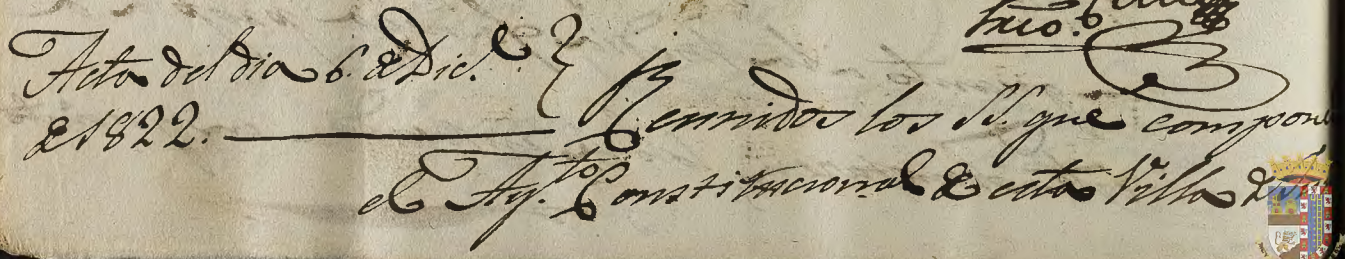 Srio.
Acta del dia 6. de Dic.e
de 1822. Reunidos los SS. que componen
el Ay.to Constitucional de esta Villa de